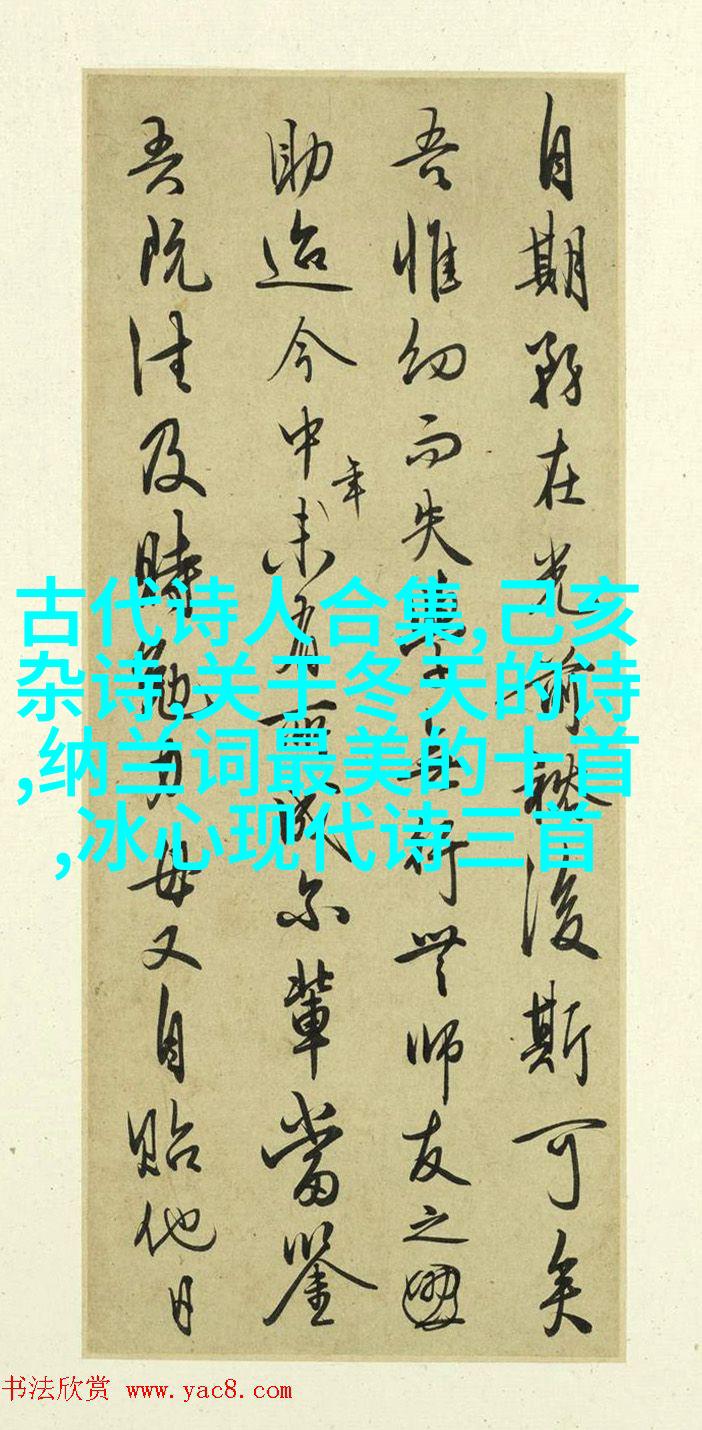 自期務在光前裕後斯可矣
吾惟幼而失學無行無師友之
助迨今中年未有所成尔輩當鑒
吾既往及時勉力毋又自貽他日
古代诗人合集,己亥
杂诗,关于冬天的诗
,纳兰词最美的十首
,冰心现代诗三首
书法欣赏 www.yac8.com